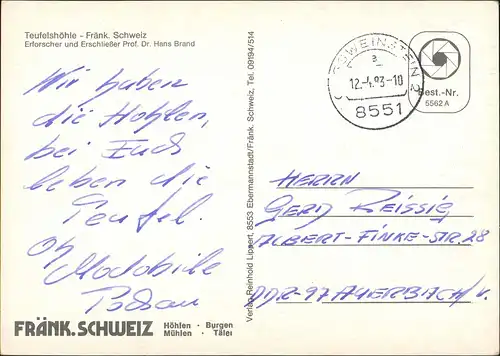 Teufelshöhle - Fränk. Schweiz
Erforscher und Erschließer Prof. Dr. Hans Brand
Wir haben
die Höhlen,
bei Euch
leben die
Teufel.
FRÄNK. SCHWEIZ
Höhlen · Burgen
Mühlen · Täler
Verlag Reinhold Lippert, 8553 Ebermannstadt/Fränk. Schweiz, Tel. 09194/514
GÖSSWEINSTEIN 2
a
12.-4.93-10
8551
Best.-Nr.
5562 A
HERRN
GERD REISSIG
ALBERT-FINKE-STR. 28
DDR-97 AUERBACH/V.